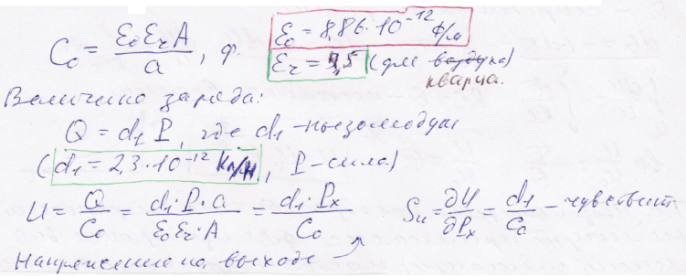 C₀ = ε₀ εᵣ A / a, ф. ε₀ = 8,86·10⁻¹² ф/м
εᵣ = 4,5 (для воздуха) кварца.
Величина заряда:
Q = d₁ P, где d₁ - пьезомодуль
(d₁ = 2,3·10⁻¹² Кл/Н, P - сила)
U = Q / C₀ = d₁·P·a / ε₀ εᵣ·A = d₁·Pₓ / C₀ Sᵤ = ∂U / ∂Pₓ = d₁ / C₀ - чувствит
Напряжение на выходе